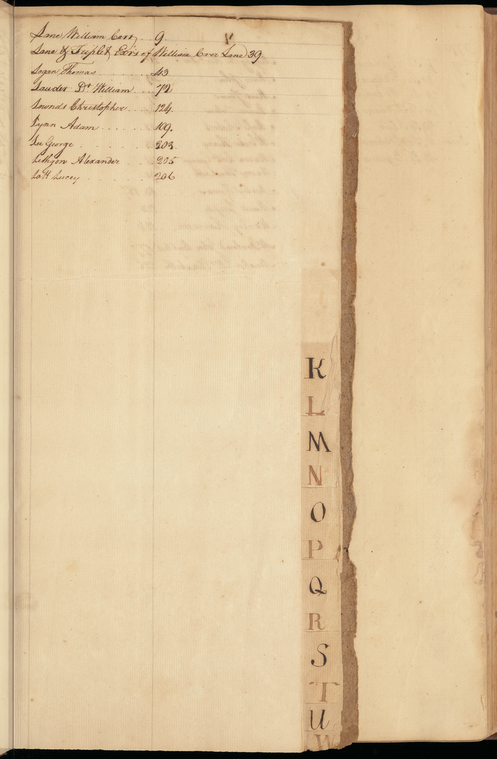 Lane William Carr . 9. V
Lane & Triplet Exrs of William Carr Lane 39.
Logan Thomas 43
Lauder Dr. William 72
Lownds Christopher 124
Lynn Adam 169.
Lee George 203
Lithgow Alexander 205
Lott Lucey 206
K
L
M
N
O
P
Q
R
S
T
U
W